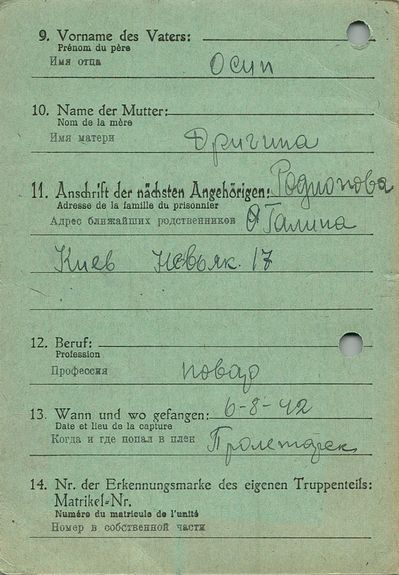 9. Vorname des Vaters:
Prénom du père
Имя отца
Осип
10. Name der Mutter:
Nom de la mère
Имя матери
Дригина
11. Anschrift der nächsten Angehörigen: Родионова
Adresse de la famille du prisonnier
Адрес ближайших родственников Галина
Киев 17
12. Beruf:
Profession
Профессия
повар
13. Wann und wo gefangen: 6-8-42
Date et lieu de la capture
Когда и где попал в плен Пролетарск
14. Nr. der Erkennungsmarke des eigenen Truppenteils:
Matrikel-Nr.
Numéro du matricule de l'unité
Номер в собственной части